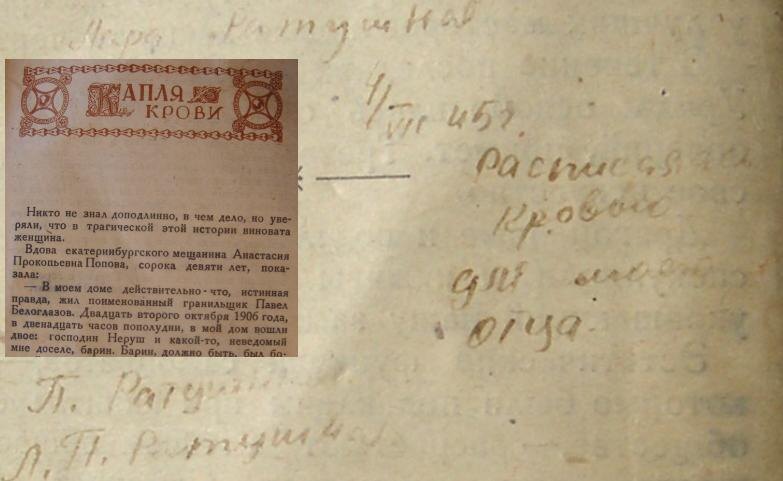 Лира Ратушная
4/VII 45г.
Расписалась
кровью
для
отца
КАПЛЯ
КРОВИ
Никто не знал доподлинно, в чем дело, но уве-
ряли, что в трагической этой истории виновата
женщина.
Вдова екатеринбургского мещанина Анастасия
Прокопьевна Попова, сорока девяти лет, пока-
зала:
— В моем доме действительно-что, истинная
правда, жил поименованный гранильщик Павел
Белоглазов. Двадцать второго октября 1906 года,
в двенадцать часов пополудни, в мой дом вошли
двое: господин Неруш и какой-то, неведомый
мне доселе, барин. Барин, должно быть, был бо-
П. Ратушная
Л. П. Ратушная